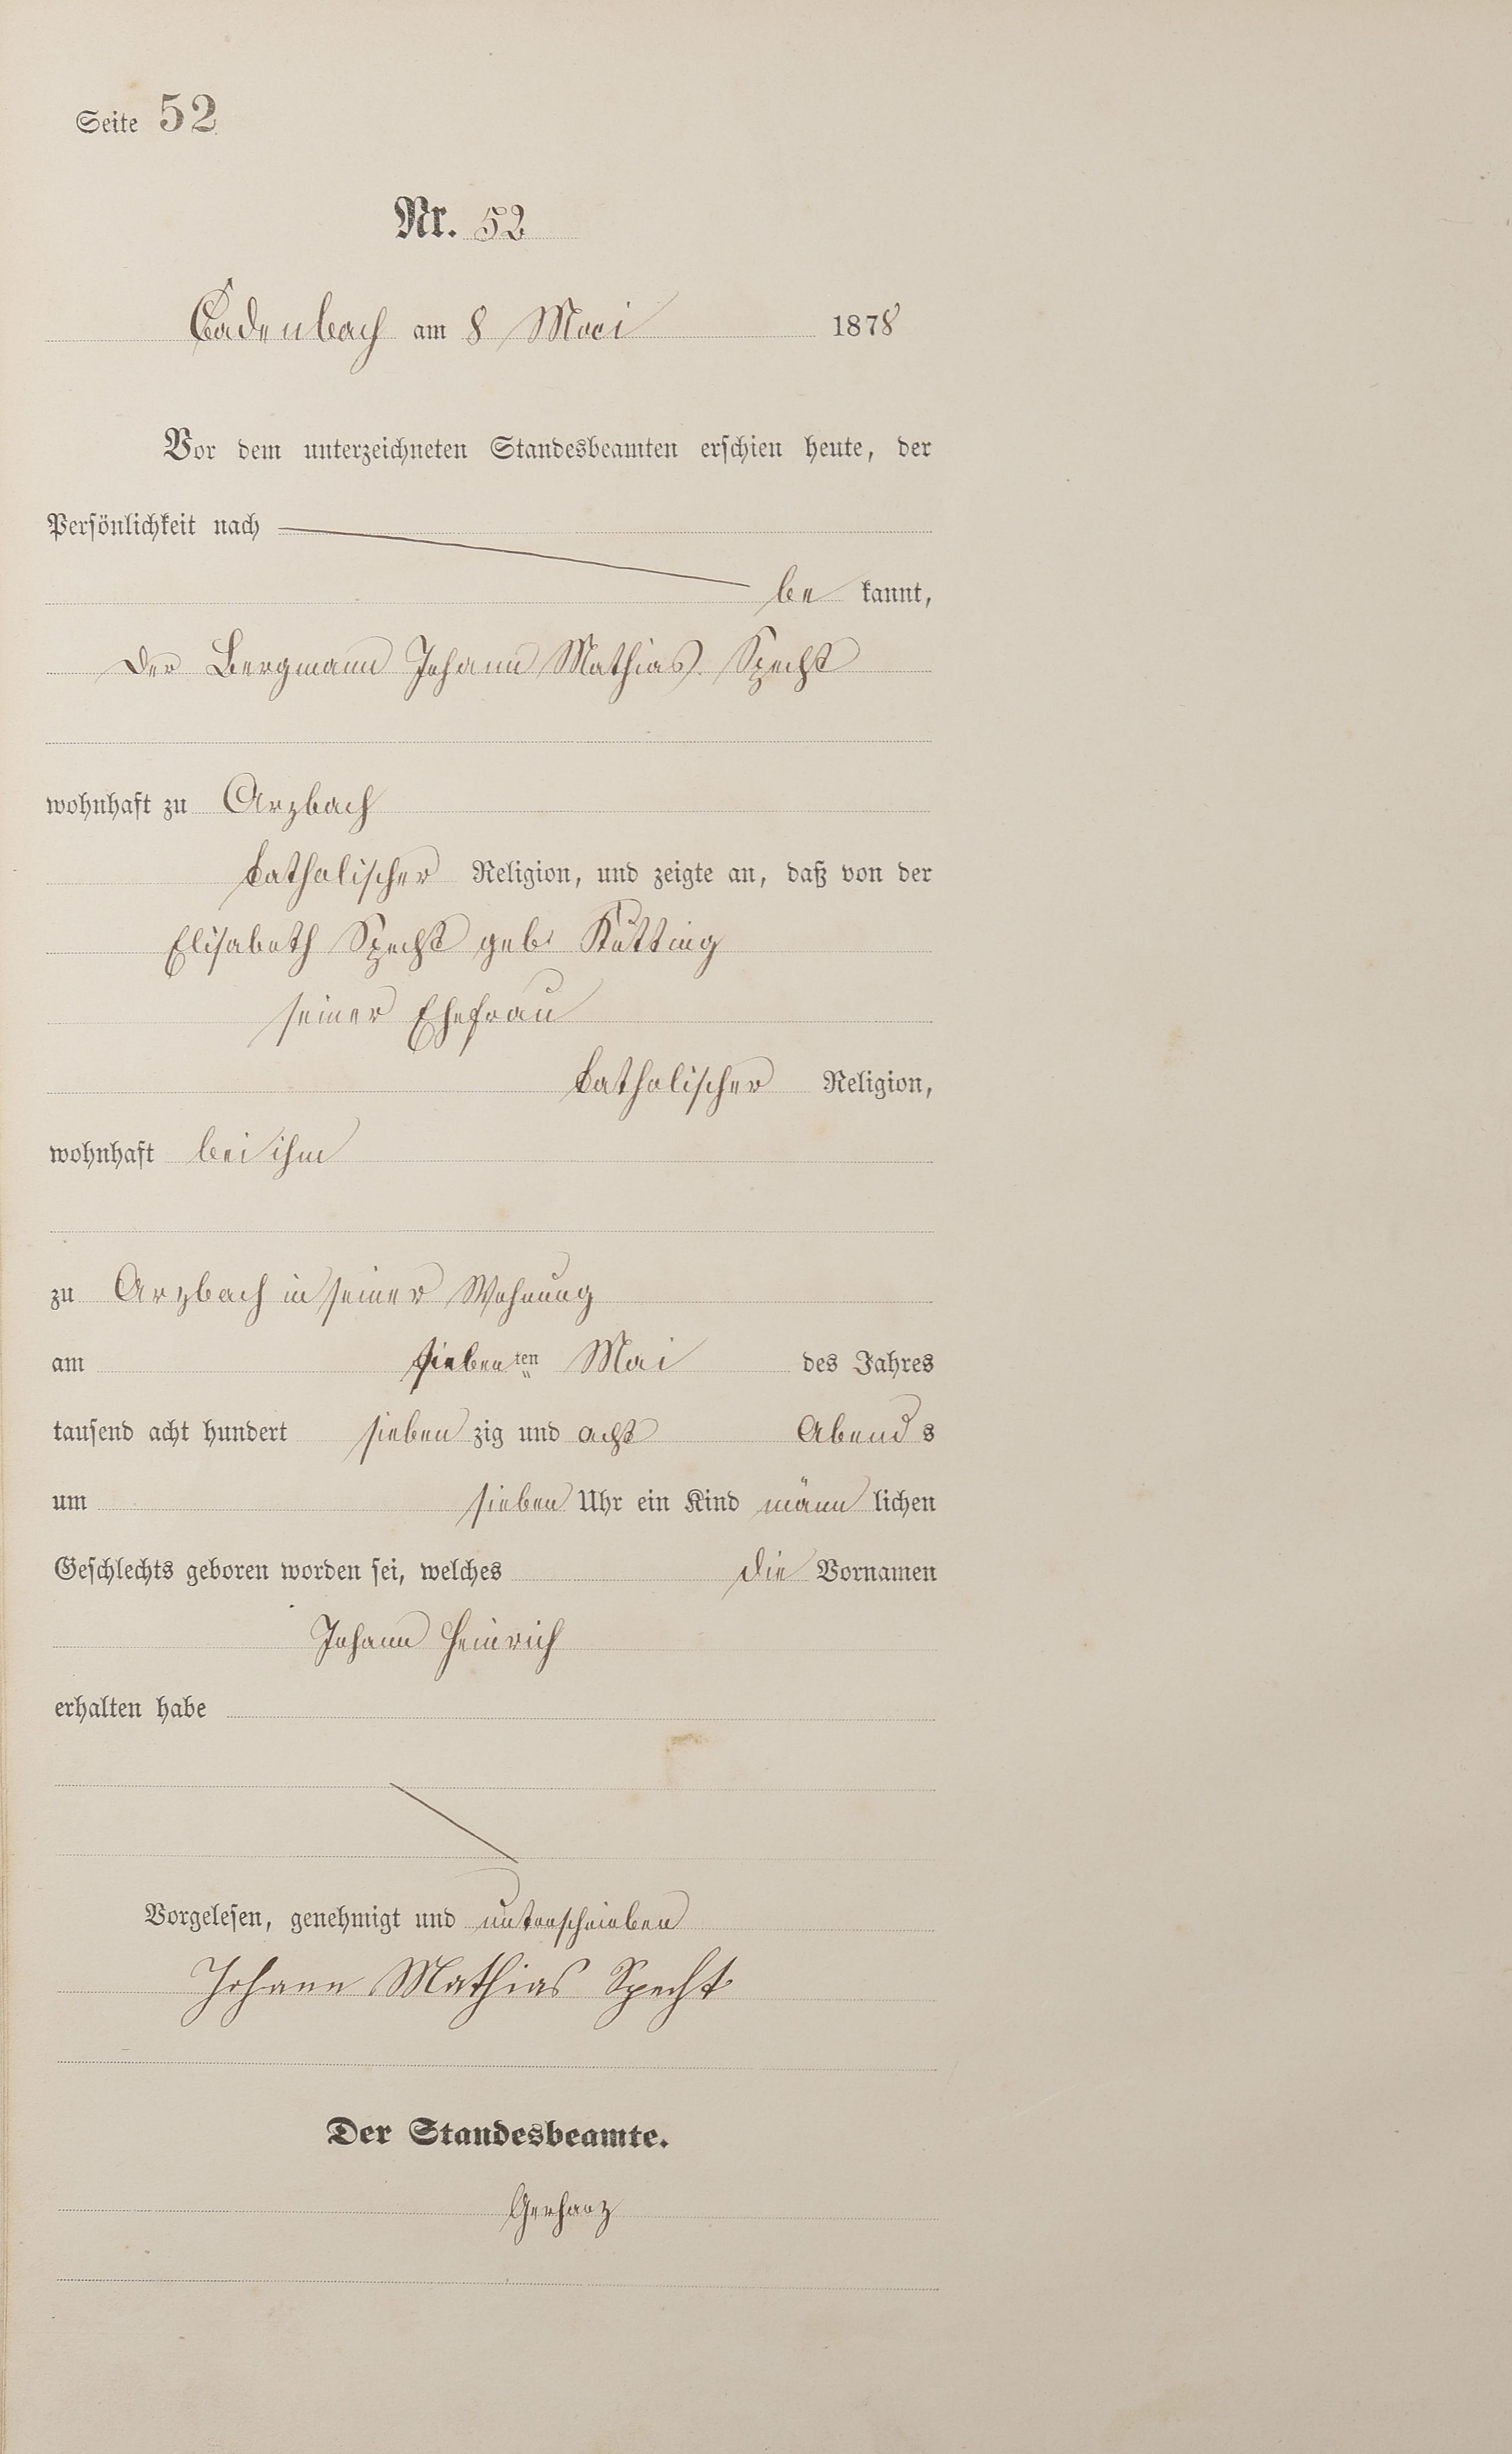 Seite 52
Nr. 52
Cadenbach am 8 Mai 1878
Vor dem unterzeichneten Standesbeamten erschien heute, der
Persönlichkeit nach
be kannt,
der Bergmann Johann Mathias Specht
wohnhaft zu Arzbach
katholischer Religion, und zeigte an, daß von der
Elisabeth Specht geb.
seiner Ehefrau
katholischer Religion,
wohnhaft bei ihm
zu Arzbach in seiner Wohnung
am sieben ten Mai des Jahres
tausend acht hundert sieben zig und acht Abend s
um sieben Uhr ein Kind männ lichen
Geschlechts geboren worden sei, welches die Vornamen
Johann Heinrich
erhalten habe
Vorgelesen, genehmigt und unterschrieben
Johann Mathias Specht
Der Standesbeamte.
Gerharz